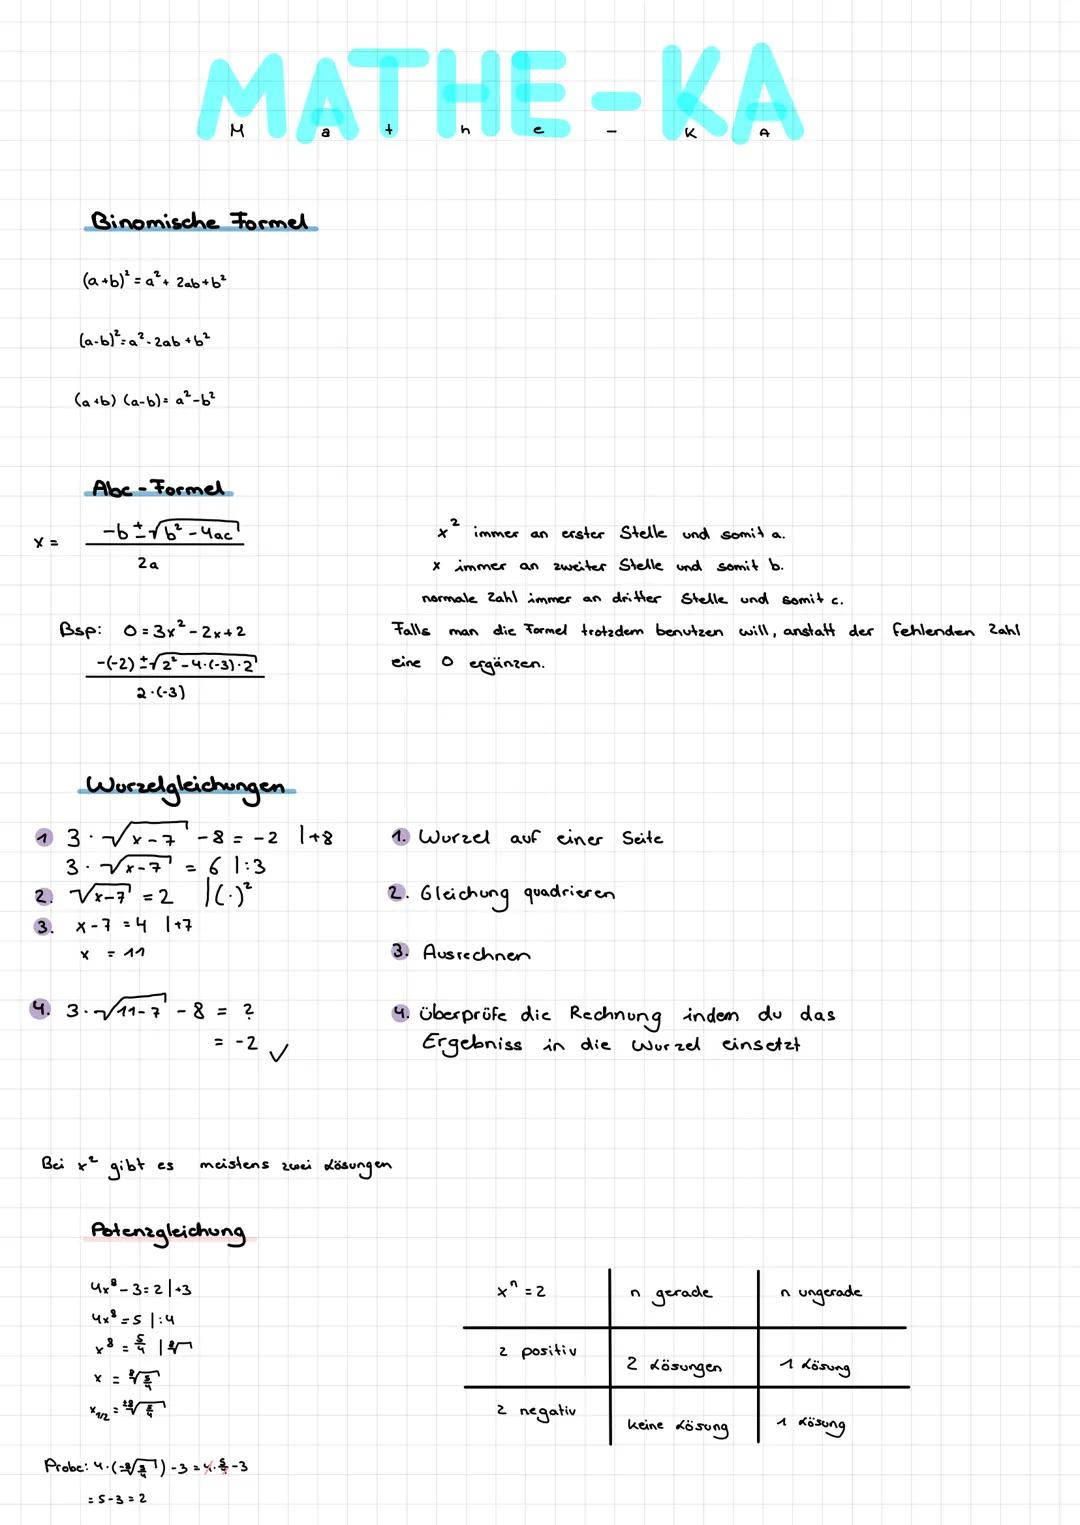 MATHE-KA
Mathe-KA
Binomische Formel
(a+b)² = a² + 2ab + b²
(a-b)² = a² - 2ab + b²
(a+b) (a-b) = a² - b²
Abc - Formel
x = (-b ± √(b² - 4ac)) / 2a
x² immer an erster Stelle und somit a.
x immer an zweiter Stelle und somit b.
normale Zahl immer an dritter Stelle und somit c.
Bsp: 0 = 3x² - 2x + 2
(-(-2) ± √(2² - 4·(-3)·2)) / 2·(-3)
Falls man die Formel trotzdem benutzen will, anstatt der fehlenden Zahl
eine 0 ergänzen.
Wurzelgleichungen
1 3 · √(x-7) - 8 = -2 |+8
3 · √(x-7) = 6 |:3
2. √(x-7) = 2 |(·)²
3. x - 7 = 4 |+7
x = 11
4. 3 · √(11-7) - 8 = ?
= -2 ✓
1. Wurzel auf einer Seite
2. Gleichung quadrieren
3. Ausrechnen
4. überprüfe die Rechnung indem du das
Ergebniss in die Wurzel einsetzt
Bei x² gibt es meistens zwei Lösungen
Potenzgleichung
4x⁸ - 3 = 2 |+3
4x⁸ = 5 |:4
x⁸ = 5/4 |⁸√
x = ⁸√(5/4)
x1/2 = ±⁸√(5/4)
Probe: 4·(±⁸√(5/4)) - 3 = 4·5/4 - 3
= 5 - 3 = 2
xⁿ = 2 n gerade n ungerade
2 positiv 2 Lösungen 1 Lösung
2 negativ keine Lösung 1 Lösung